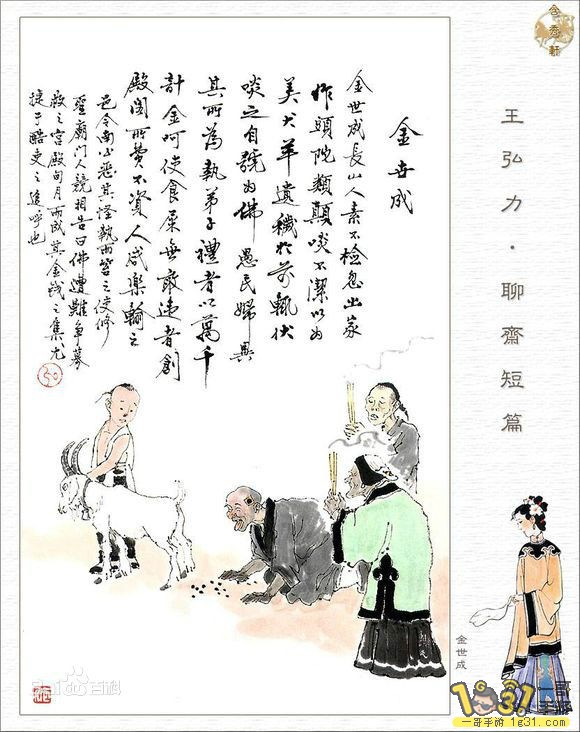 王弘力·聊齋短篇
金世成
金世成長山人素不檢忽出家
作頭陀類顛啖不潔以為
美犬羊遺穢於前輒伏
啖之自號為佛愚民婦異
其所為執弟子禮者以萬千
計金呵使食屎無敢違者創
殿閣所費不資人咸樂輸之
邑令南公惡其怪執而笞之使修
聖廟門人競相告曰佛遭難爭募
救之宮殿旬月而成其金錢之集尤
捷于酷吏之追呼也
金世成
Bai百科
1G31 一哥手游
一哥手游 1g31.com